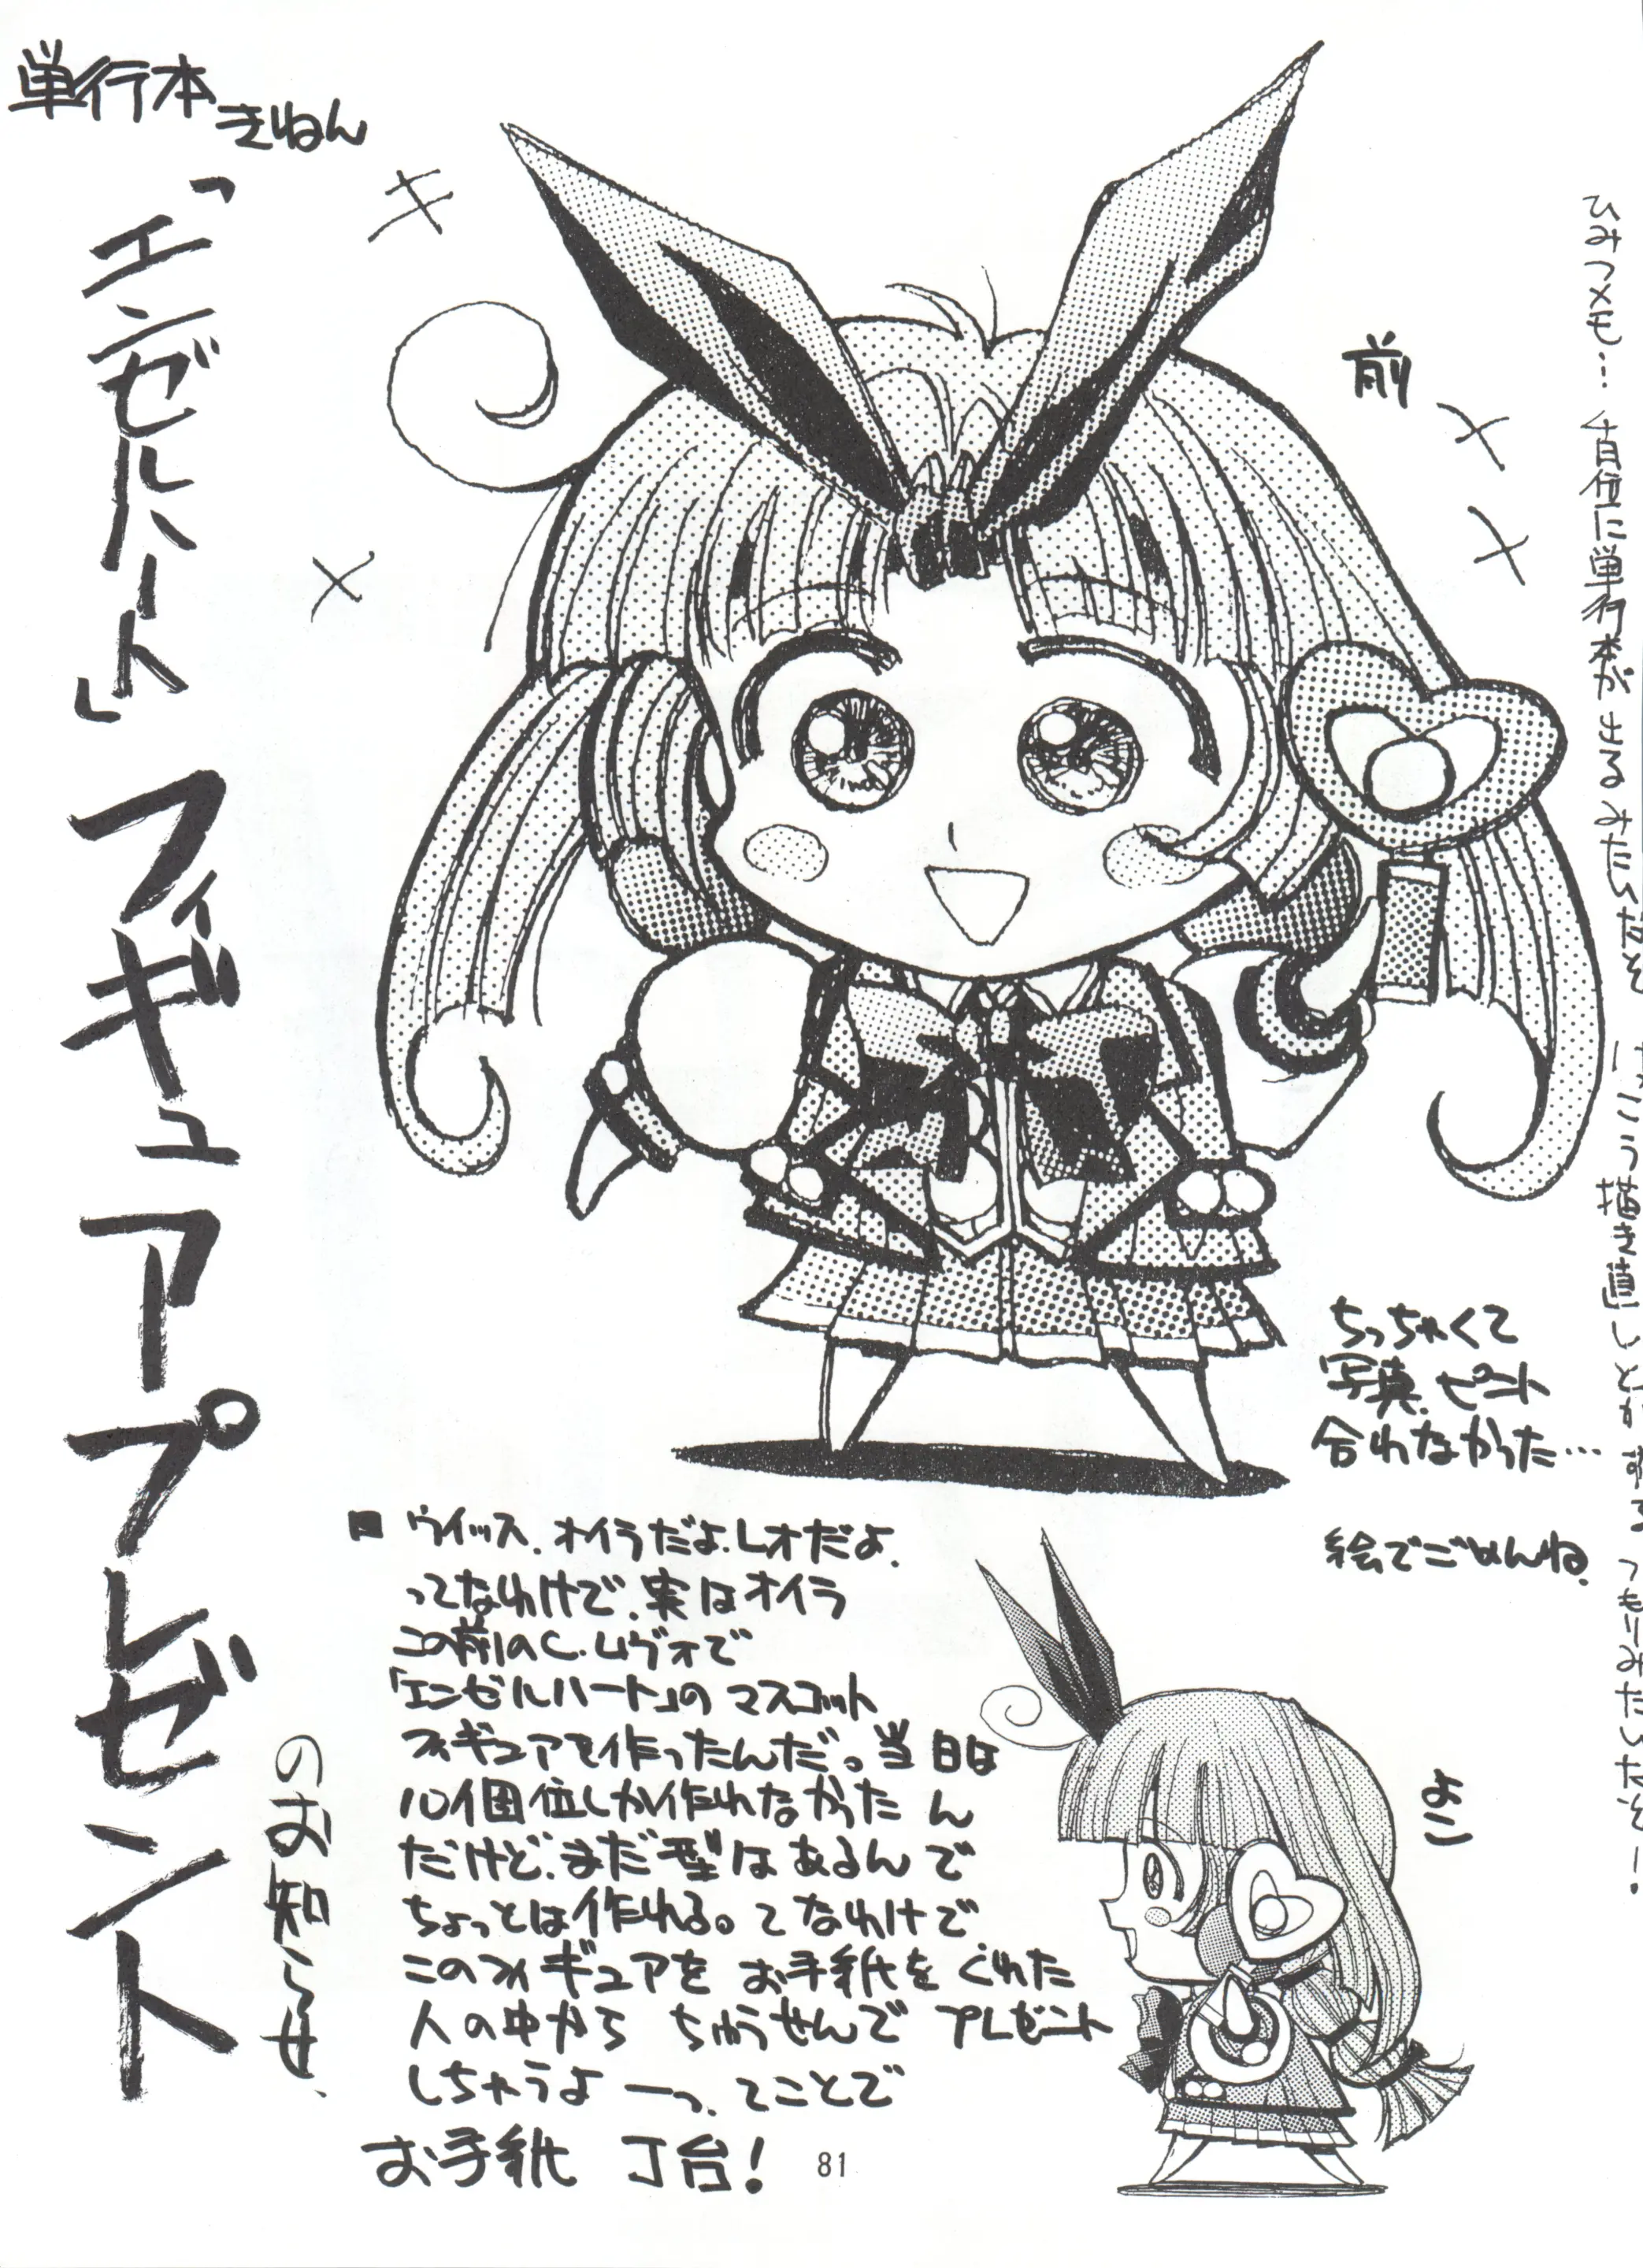 単行本
きねん
「エンゼルハート」フィギュアプレゼント
のお知らせ、
前
ひみつメモ… 千日位に単行本が出るみたいだぞ
描き直しとか
つもりみたいだぞー!
ちっちゃくて
写真、ピント
合わなかった…
絵でごめんね。
■ ウイッス、オイラだよ、レオだよ、
ってなわけで、実はオイラ
この前のC.レヴォで
「エンゼルハート」のマスコット
フィギュアを作ったんだ。当日は
10個位しか作れなかったん
だけど、まだ型はあるんで
ちょっとは作れる。てなわけで、
このフィギュアをお手紙をくれた
人の中から ちゅうせんで プレゼント
しちゃうよーっ、てことで
お手紙 丁台!
よこ
81